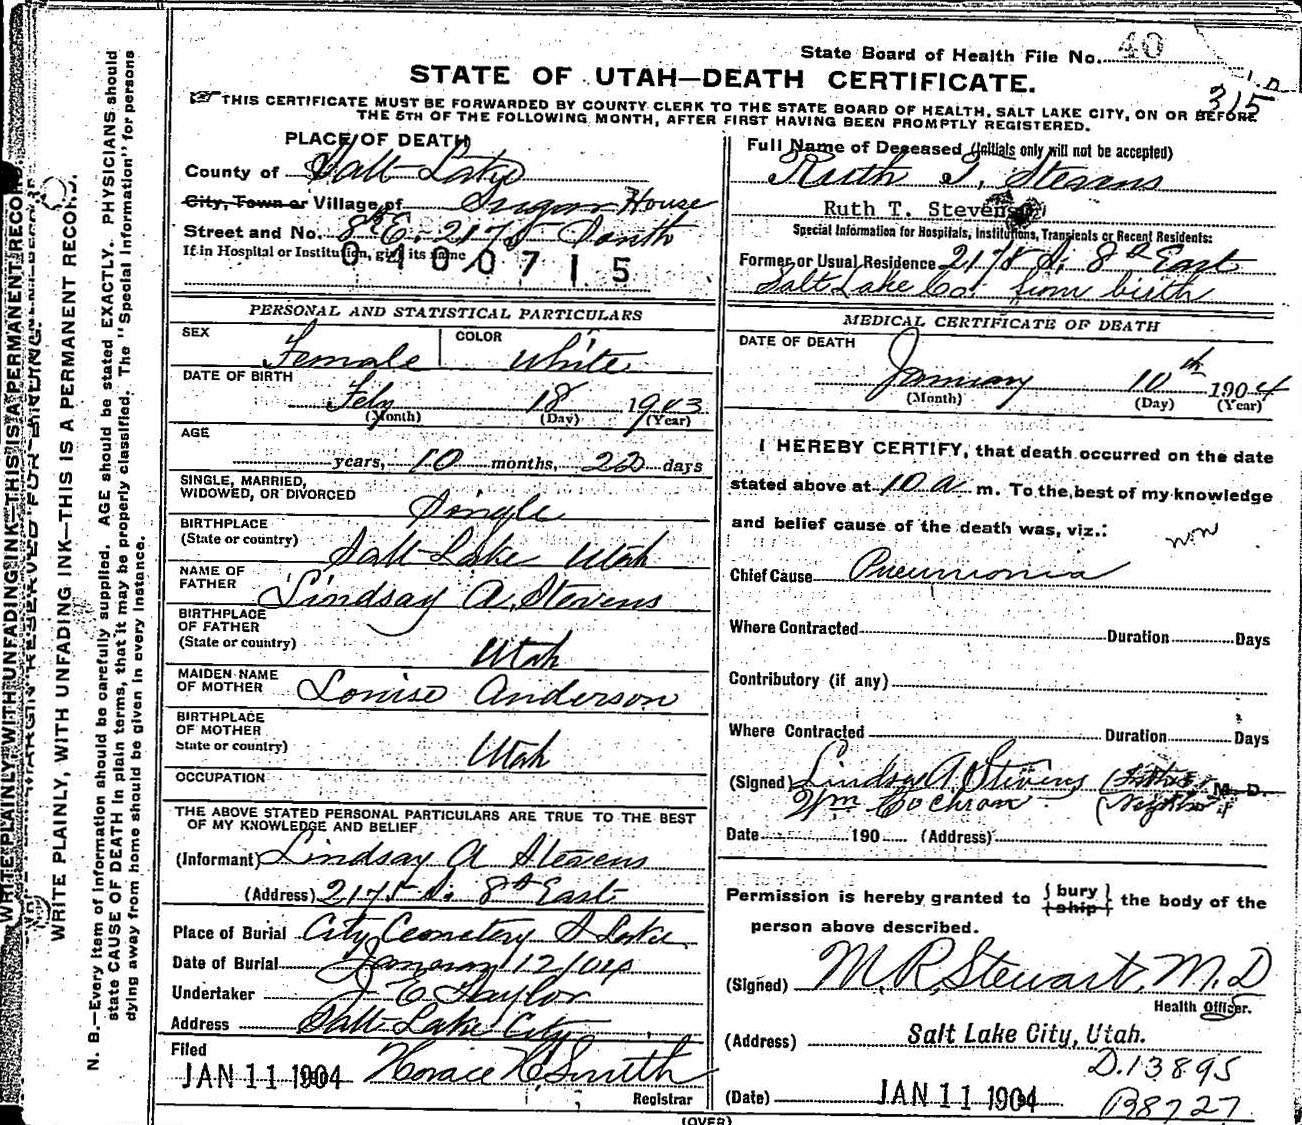 State Board of Health File No. 40
STATE OF UTAH—DEATH CERTIFICATE.
315
THIS CERTIFICATE MUST BE FORWARDED BY COUNTY CLERK TO THE STATE BOARD OF HEALTH, SALT LAKE CITY, ON OR BEFORE
THE 5TH OF THE FOLLOWING MONTH, AFTER FIRST HAVING BEEN PROMPTLY REGISTERED.
PLACE OF DEATH
County of Salt Lake
City, Town or Village of Sugar House
Street and No. 8th E. 2175 South
If in Hospital or Institution, give its name
0400715
PERSONAL AND STATISTICAL PARTICULARS
SEX Female COLOR White
DATE OF BIRTH
Feby 18 1903
(Month) (Day) (Year)
AGE
years, 10 months, 22 days
SINGLE, MARRIED,
WIDOWED, OR DIVORCED
Single
BIRTHPLACE
(State or country) Salt Lake Utah
NAME OF
FATHER Lindsay A. Stevens
BIRTHPLACE
OF FATHER
(State or country) Utah
MAIDEN NAME
OF MOTHER Louise Anderson
BIRTHPLACE
OF MOTHER
State or country) Utah
OCCUPATION
THE ABOVE STATED PERSONAL PARTICULARS ARE TRUE TO THE BEST
OF MY KNOWLEDGE AND BELIEF
(Informant) Lindsay A Stevens
(Address) 2175 S. 8th East
Place of Burial City Cemetery S Lake
Date of Burial January 12/04
Undertaker J E Taylor
Address Salt Lake City
Filed
JAN 11 1904 Horace H Smith
Registrar
Full Name of Deceased (Initials only will not be accepted)
Ruth T. Stevens
Ruth T. Stevens
Special Information for Hospitals, Institutions, Transients or Recent Residents:
Former or Usual Residence 2175 S. 8th East
Salt Lake Co. from birth
MEDICAL CERTIFICATE OF DEATH
DATE OF DEATH
January 10th 1904
(Month) (Day) (Year)
I HEREBY CERTIFY, that death occurred on the date
stated above at 10 a m. To the best of my knowledge
and belief cause of the death was, viz.:
Chief Cause Pneumonia
Where Contracted Duration Days
Contributory (if any)
Where Contracted Duration Days
(Signed) Lindsay A Stevens (Father) M. D.
Wm Cochran (Neighbor)
Date 190 (Address)
Permission is hereby granted to { bury } the body of the
{ ship }
person above described.
(Signed) M. R. Stewart, M. D
Health Officer.
(Address) Salt Lake City, Utah.
D.13895
(Date) JAN 11 1904
B8727
(OVER)
WRITE PLAINLY, WITH UNFADING INK—THIS IS A PERMANENT RECORD.
MARGIN RESERVED FOR BINDING.
WRITE PLAINLY, WITH UNFADING INK—THIS IS A PERMANENT RECORD.
N. B.—Every item of information should be carefully supplied. AGE should be stated EXACTLY. PHYSICIANS should
state CAUSE OF DEATH in plain terms, that it may be properly classified. The "Special Information" for persons
dying away from home should be given in every instance.